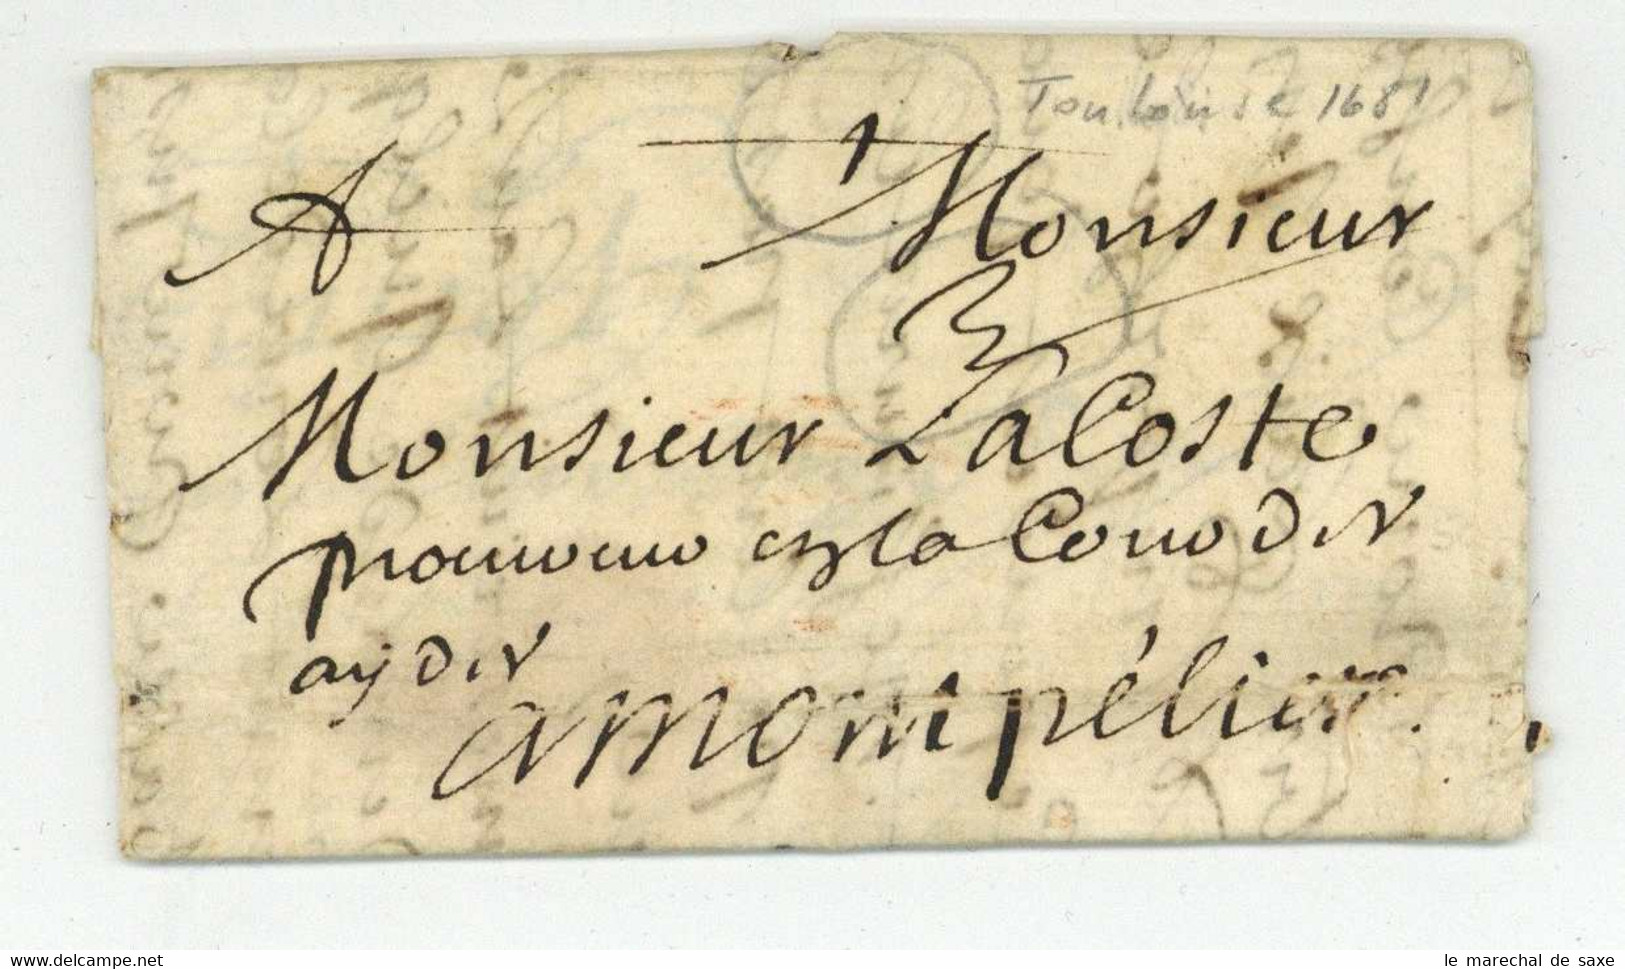 Toulouse 1681
A Monsieur
3
Monsieur LaCoste
procureur en la Cour des
aydes
a montpélier.
www.delcampe.net
le marechal de saxe